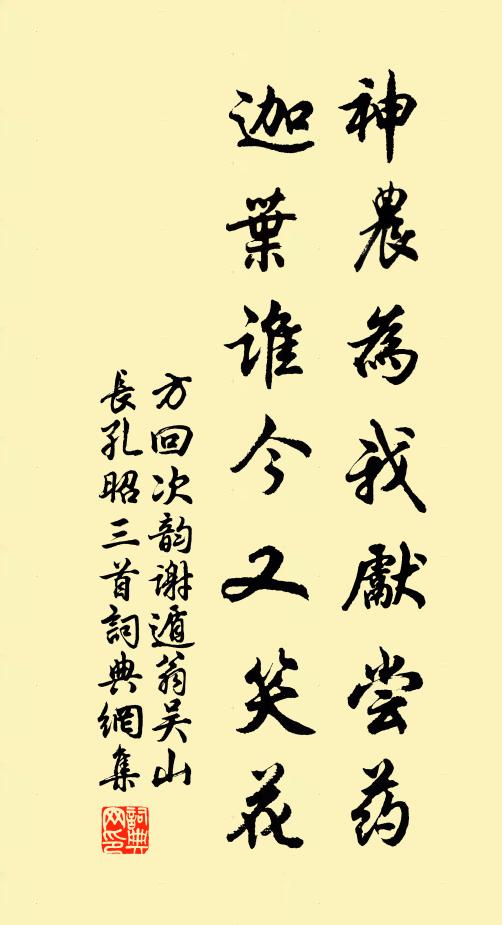 神農為我獻尝药
迦葉谁今又笑花
方回次韵谢遁翁吴山
長孔昭三首詞典網集
詞典网印